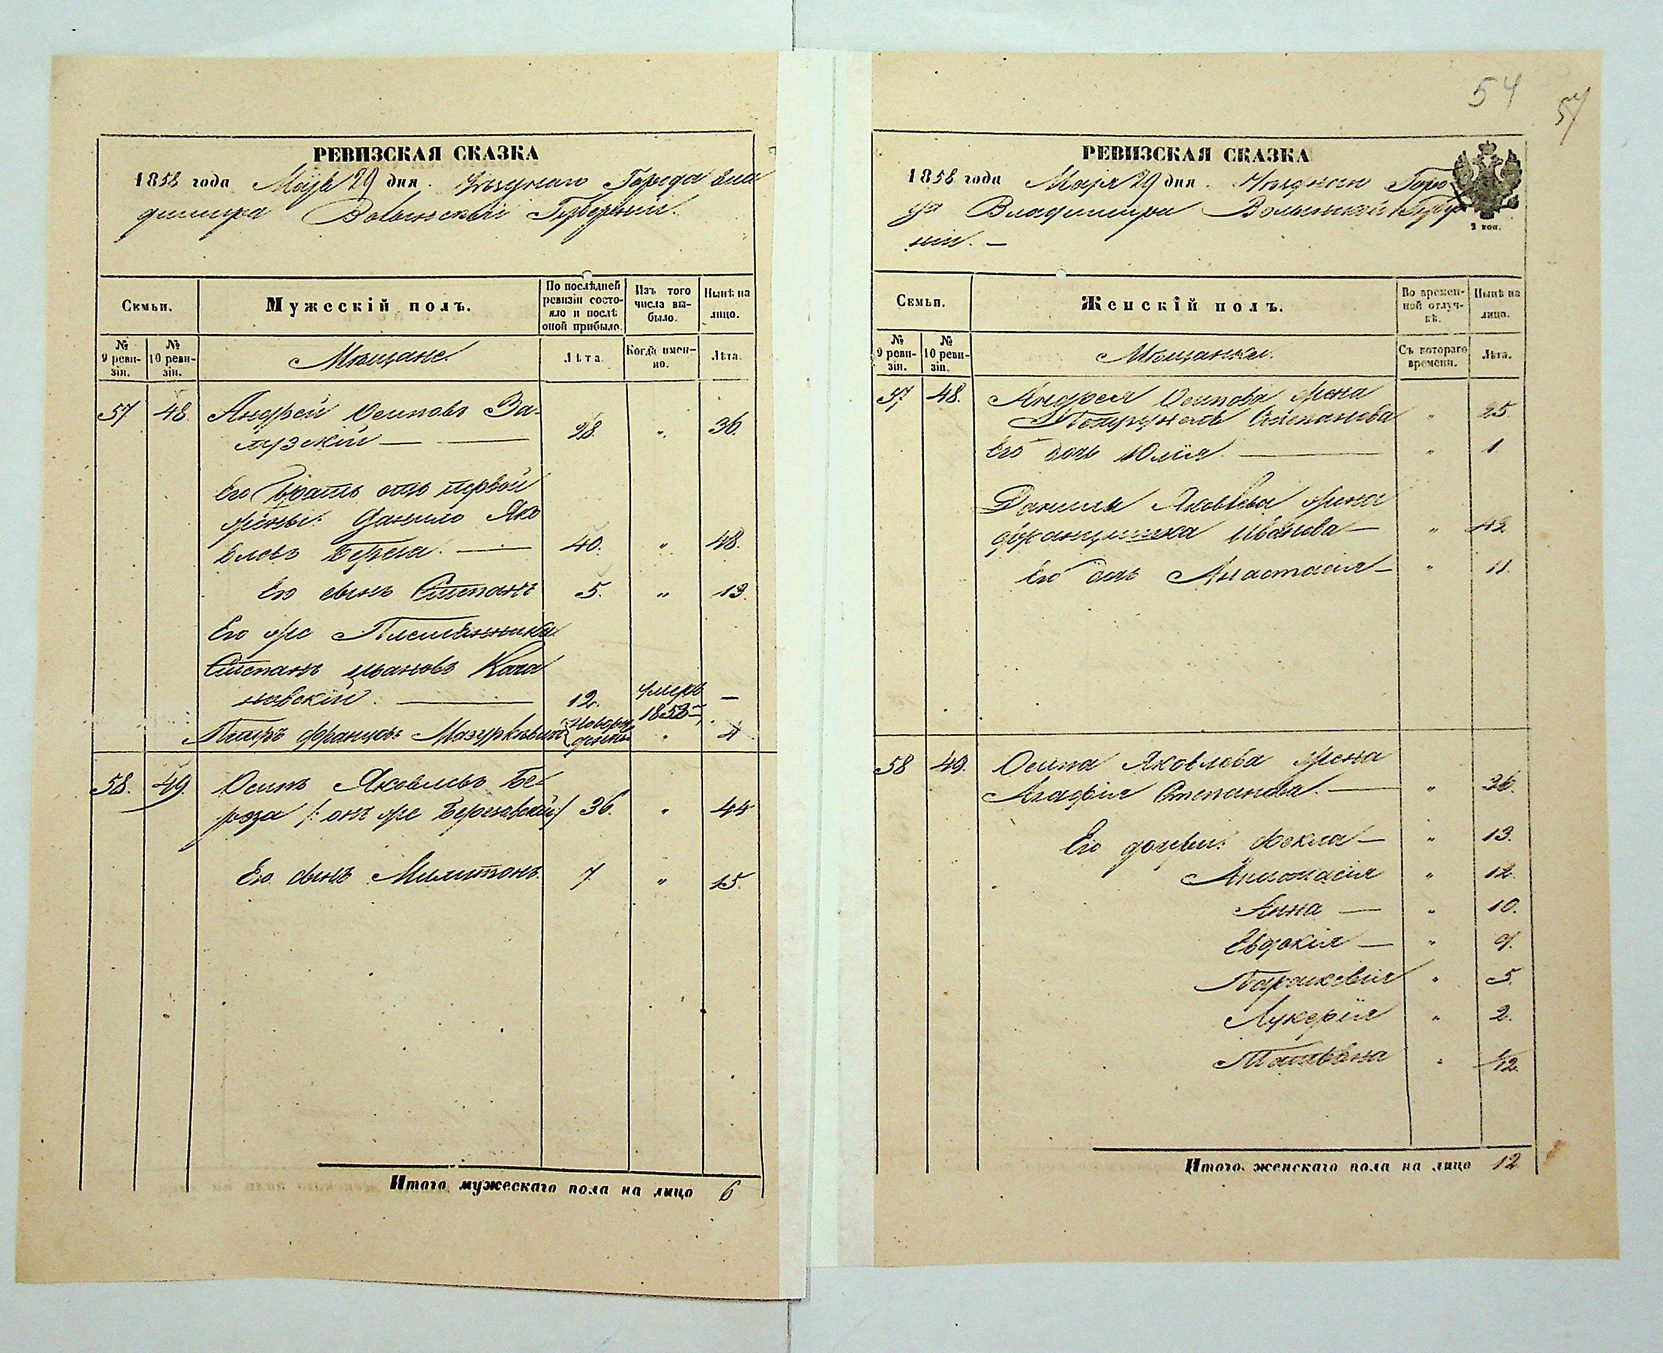 РЕВИЗСКАЯ СКАЗКА
1858 года Маія 29 дня. Уѣзднаго Города Вла
димира Волынской Губерніи.
Семьи.
Мужескій полъ.
По послѣдней ревизіи состояло и послѣ оной прибыло.
Изъ того числа выбыло.
Нынѣ на лицо.
№ 9 ревизіи.
№ 10 ревизіи.
Мѣщане
Лѣта.
Когда именно.
Лѣта.
57 48. Андрей Осиповъ За-
мускій — 28. „ 36.
Его братъ отъ первой
жены: Данило Яко
влевъ Береза. — 40. „ 48.
Его сынъ Степанъ 5. „ 13
Его же Племянника
Степанъ Ивановъ Коча
новскій. — 12. умеръ 1853 —
Петръ Францовъ Мазуркевичъ новорожденъ „ 4
58. 49. Осипъ Яковлевъ Бе-
реза /: онъ же Березовскій:/ 36. „ 44
Его сынъ Милитонъ. 7 „ 15.
Итого мужескаго пола на лицо 6
54
54
РЕВИЗСКАЯ СКАЗКА
1858 года Маія 29 дня. Уѣзднаго Горо-
да Владимира Волынской Губер
ніи. —
2 коп.
Семьи.
Женскій полъ.
Во временной отлучкѣ.
Нынѣ на лицо.
№ 9 ревизіи.
№ 10 ревизіи.
Мѣщанки.
Съ котораго времени.
Лѣта.
57. 48. Андрея Осипова жена
Степанова „ 25
Его дочь Юлія. — „ 1
Данила Яковлева жена
Францишка Иванова — „ 42
Его дочь Анастасія — „ 11.
58 49. Осипа Яковлева жена
Агафія Степанова. — „ 36.
Его дочери: Фекла — „ 13.
Анастасія „ 12.
Анна — „ 10.
Евдокія — „ 9.
Параскевія „ 5
Лукерія „ 2.
Татіана „ 1/12.
Итого женскаго пола на лицо 12